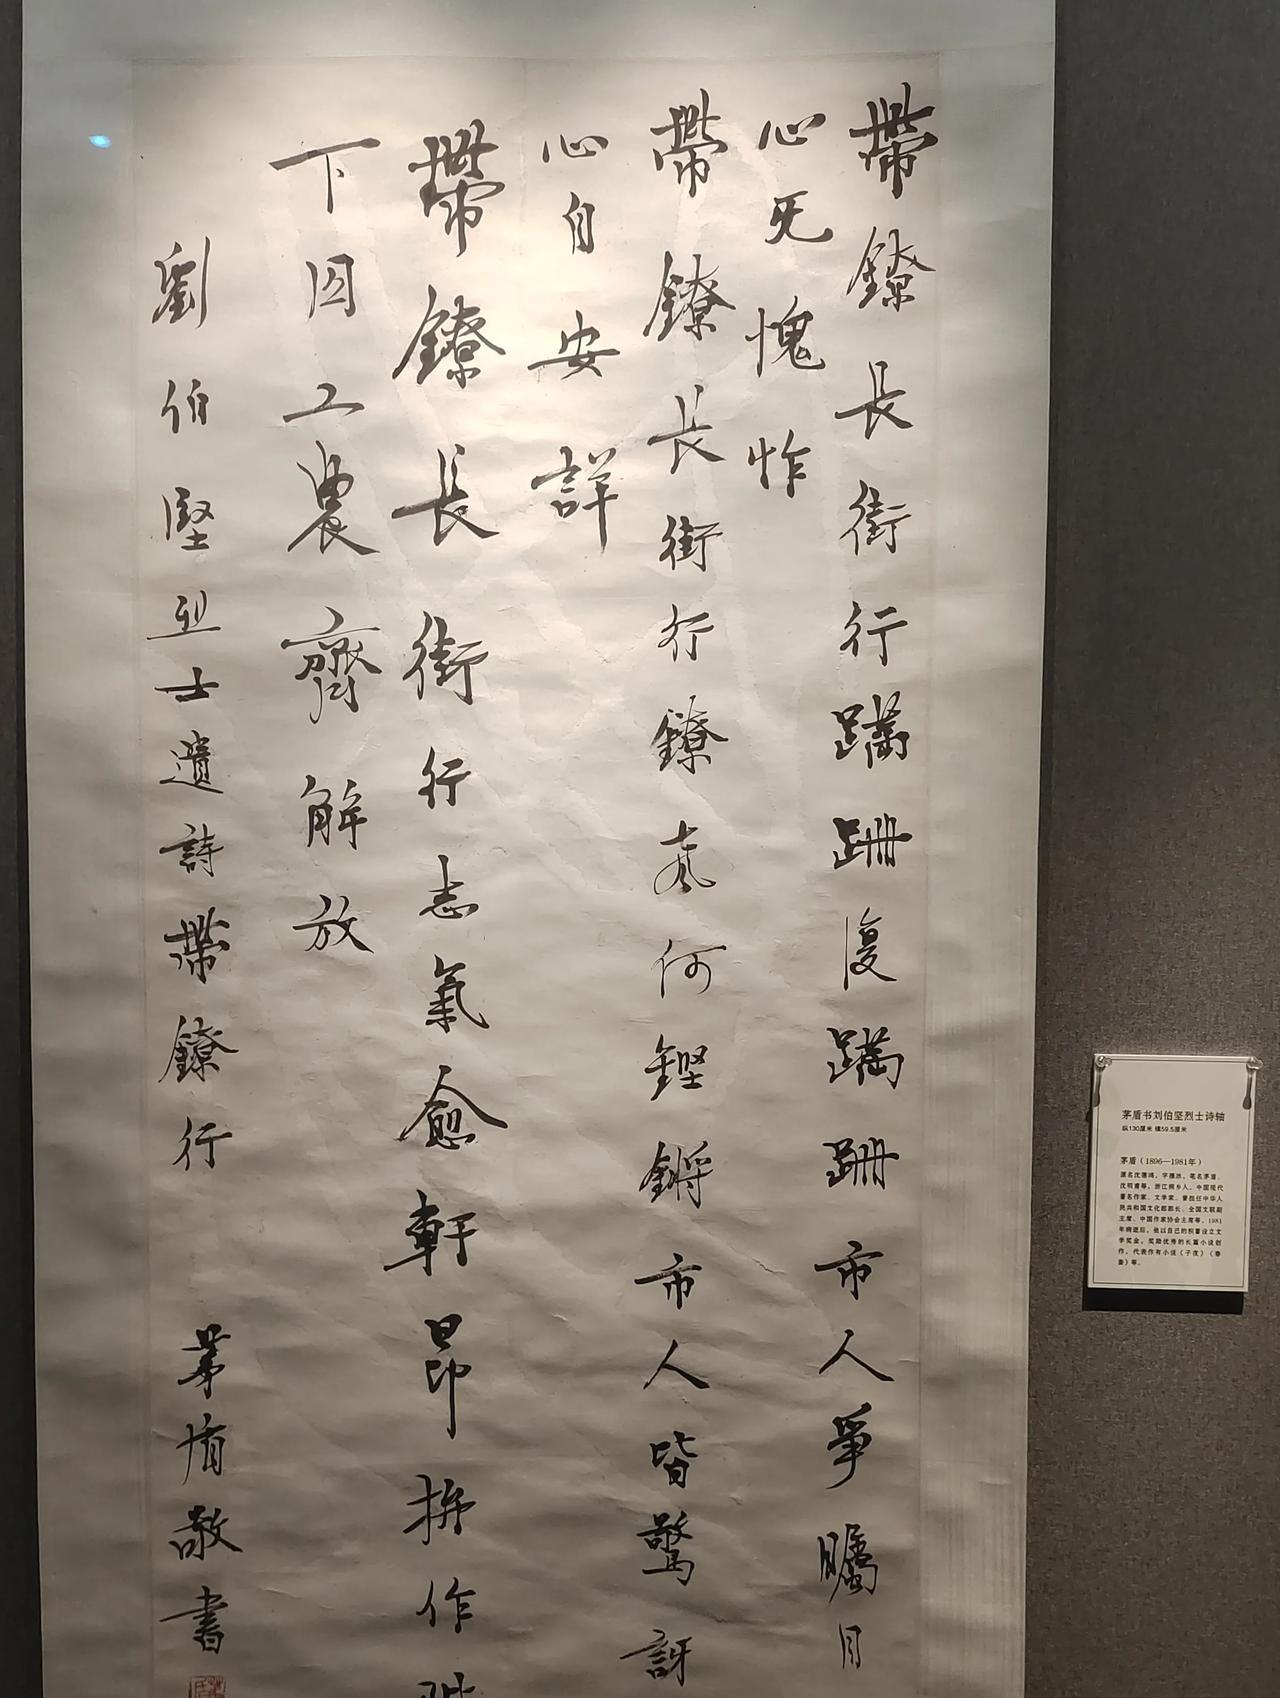 帶鐐長街行蹣跚復蹣跚市人爭矚目
心无愧怍
帶鐐長街行鐐声何鏗鏘市人皆驚訝
心自安詳
帶鐐長街行志氣愈軒昂拚作階
下囚工農齊解放
劉伯堅烈士遺詩帶鐐行 茅盾敬書
茅盾书刘伯坚烈士诗轴
纵130厘米 横59.5厘米
茅盾（1896—1981年）
原名沈德鸿，字雁冰，笔名茅盾、
沈明甫等，浙江桐乡人，中国现代
著名作家、文学家，曾担任中华人
民共和国文化部部长、全国文联副
主席、中国作家协会主席等，1981
年病逝后，他以自己的积蓄设立文
学奖金，奖励优秀的长篇小说创
作，代表作有小说《子夜》《春
蚕》等。